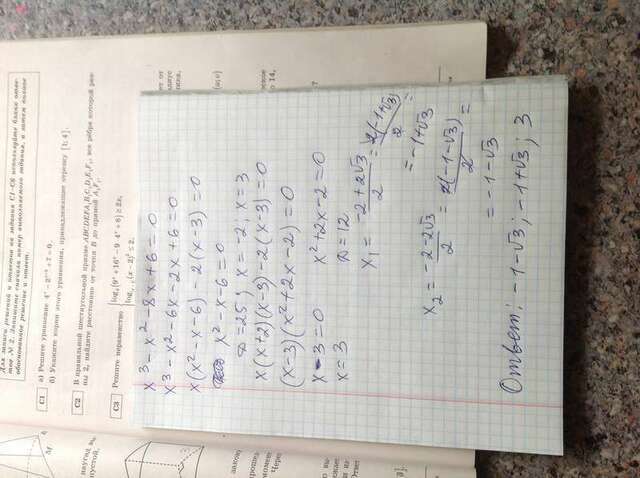 Для записи решений и ответов на задания С1–С6 используйте бланк отве-
тов № 2. Запишите сначала номер выполняемого задания, а затем полное
обоснованное решение и ответ.
C1
а) Решите уравнение
б) Укажите корни этого уравнения, принадлежащие отрезку [1; 4].
C2
В правильной шестиугольной призме ABCDEFA₁B₁C₁D₁E₁F₁, все рёбра которой рав-
ны 2, найдите расстояние от точки B до прямой A₁F₁.
C3
Решите неравенство
x³ - x² - 8x + 6 = 0
x³ - x² - 6x - 2x + 6 = 0
x(x² - x - 6) - 2(x - 3) = 0
x² - x - 6 = 0
D = 25; x = -2; x = 3
x(x+2)(x-3) - 2(x-3) = 0
(x-3)(x² + 2x - 2) = 0
x - 3 = 0 x² + 2x - 2 = 0
x = 3 D = 12
x₁ = (-2+2√3)/2 = 2(-1+√3)/2 =
= -1+√3
x₂ = (-2-2√3)/2 = 2(-1-√3)/2 =
= -1-√3
Ответ: -1-√3; -1+√3; 3